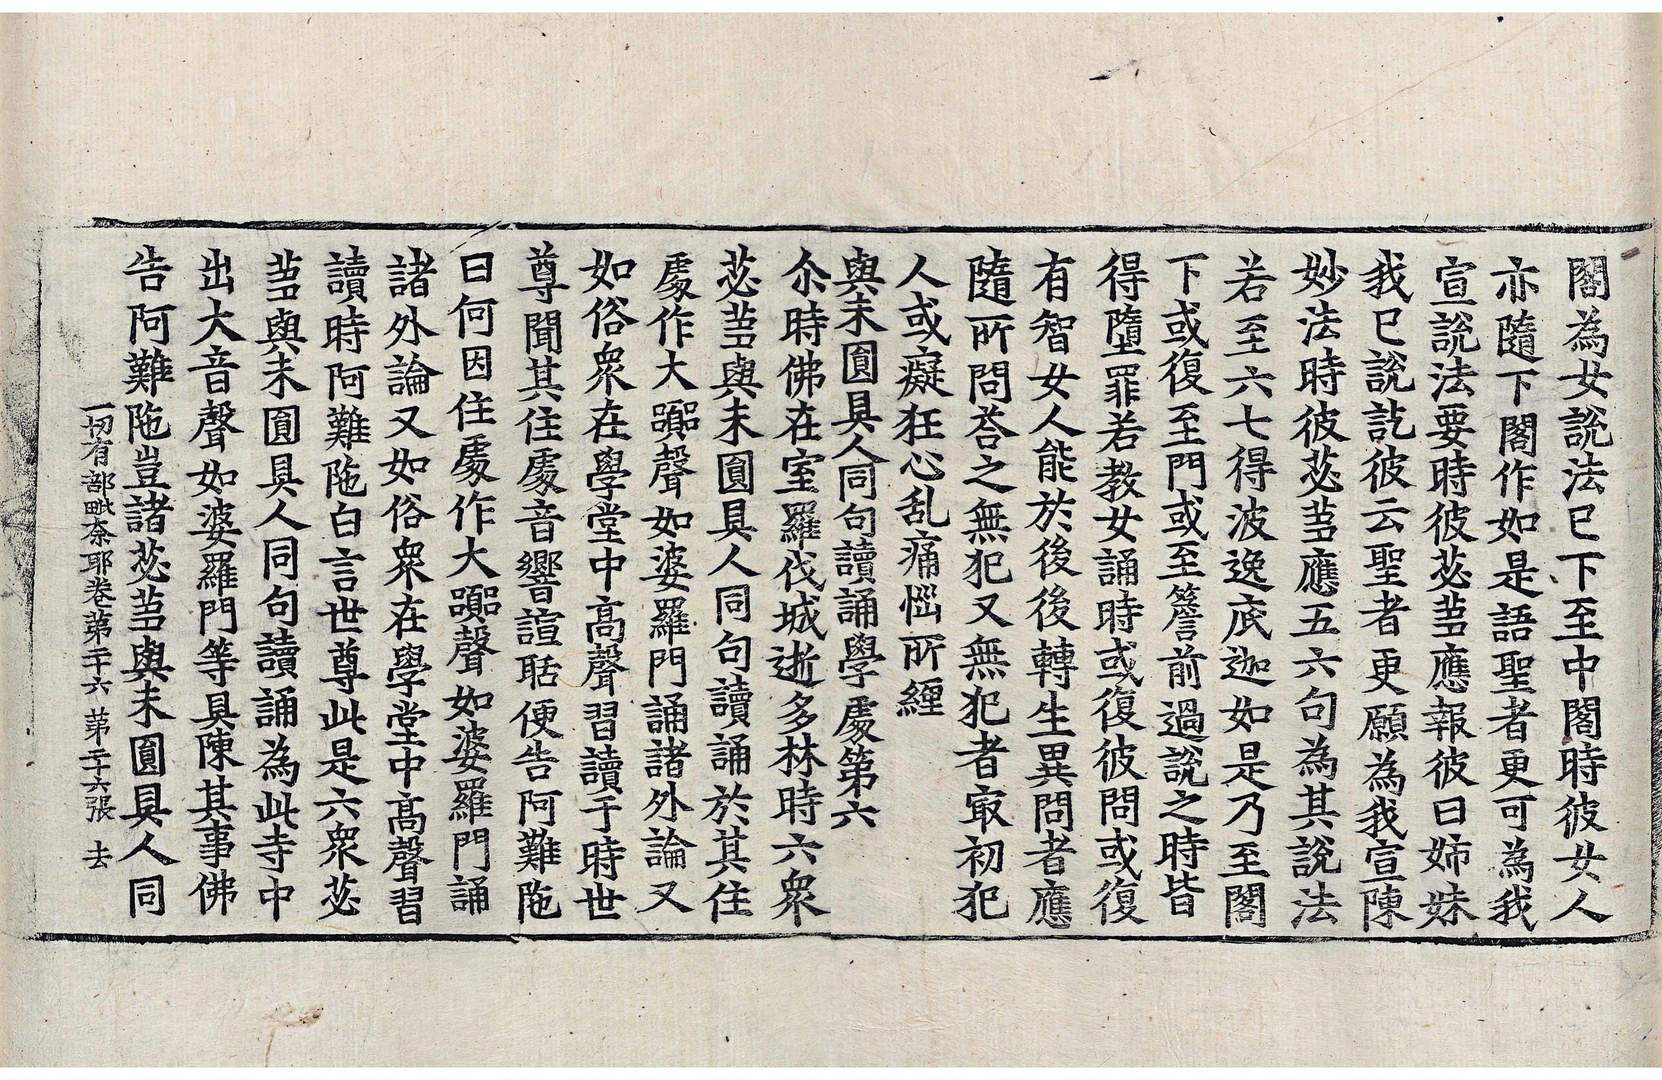 閣為女說法已下至中閣時彼女人
亦隨下閣作如是語聖者更可為我
宣說法要時彼苾芻應報彼曰姉妹
我已說訖彼云聖者更願為我宣陳
妙法時彼苾芻應五六句為其說法
若至六七得波逸底迦如是乃至閣
下或復至門或至簷前過說之時皆
得墮罪若教女誦時或復彼問或復
有智女人能於後後轉生異問者應
隨所問荅之無犯又無犯者㝡初犯
人或癡狂心乱痛惱所纒
與未圓具人同句讀誦學處第六
尒時佛在室羅伐城逝多林時六衆
苾芻與未圓具人同句讀誦於其住
處作大囂聲如婆羅門誦諸外論又
如俗衆在學堂中高聲習讀于時世
尊聞其住處音響諠聒便告阿難陁
曰何因住處作大囂聲如婆羅門誦
諸外論又如俗衆在學堂中高聲習
讀時阿難陁白言世尊此是六衆苾
芻與未圓具人同句讀誦為此寺中
出大音聲如婆羅門等具陳其事佛
告阿難陁豈諸苾芻與未圓具人同
一切有部毗奈耶卷第二十六 第二十六張 去